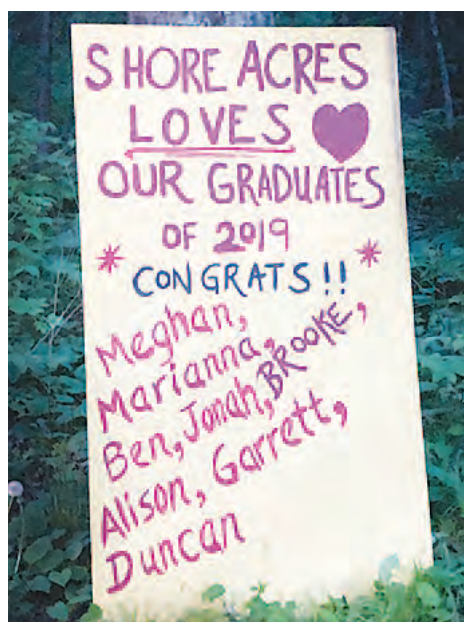 SHORE ACRES
LOVES
OUR GRADUATES
OF 2019
CONGRATS!!
Meghan,
Marianna,
Ben, Jonah, BROOKE,
Alison, Garrett,
Duncan